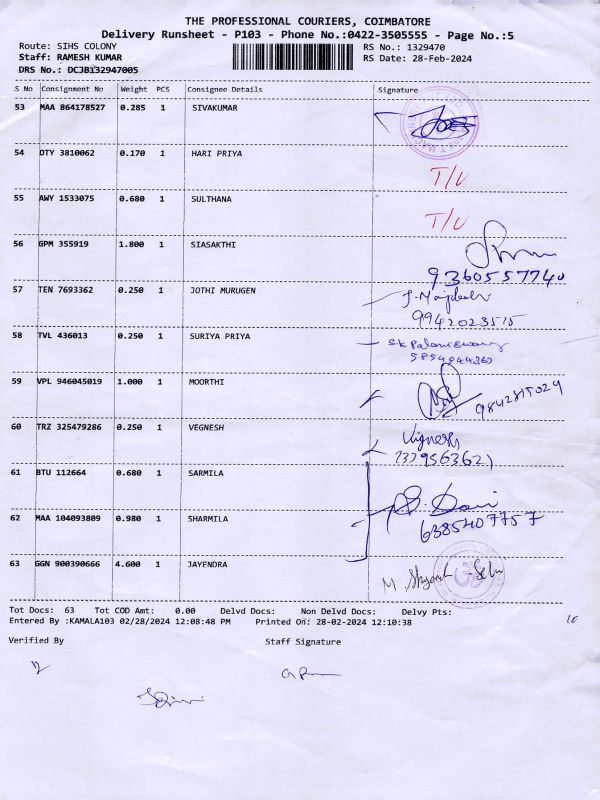 THE PROFESSIONAL COURIERS, COIMBATORE
Delivery Runsheet - P103 - Phone No.:0422-3505555 - Page No.:5
Route: SIHS COLONY RS No.: 1329470
Staff: RAMESH KUMAR RS Date: 28-Feb-2024
DRS No.: DCJB132947005
S No Consignment No Weight PCS Consignee Details Signature
53 MAA 864178527 0.285 1 SIVAKUMAR
54 DTY 3810062 0.170 1 HARI PRIYA T/U
55 AWY 1533075 0.680 1 SULTHANA T/U
56 GPM 355919 1.800 1 SIASAKTHI
9360557740
57 TEN 7693362 0.250 1 JOTHI MURUGEN
9942023515
58 TVL 436013 0.250 1 SURIYA PRIYA
59 VPL 946045019 1.000 1 MOORTHI 9842815029
60 TRZ 325479286 0.250 1 VEGNESH Vignesh
61 BTU 112664 0.680 1 SARMILA
62 MAA 104093809 0.980 1 SHARMILA 6385407757
63 GGN 900390666 4.600 1 JAYENDRA
Tot Docs: 63 Tot COD Amt: 0.00 Delvd Docs: Non Delvd Docs: Delvy Pts:
Entered By :KAMALA103 02/28/2024 12:08:48 PM Printed On: 28-02-2024 12:10:38 10
Verified By Staff Signature